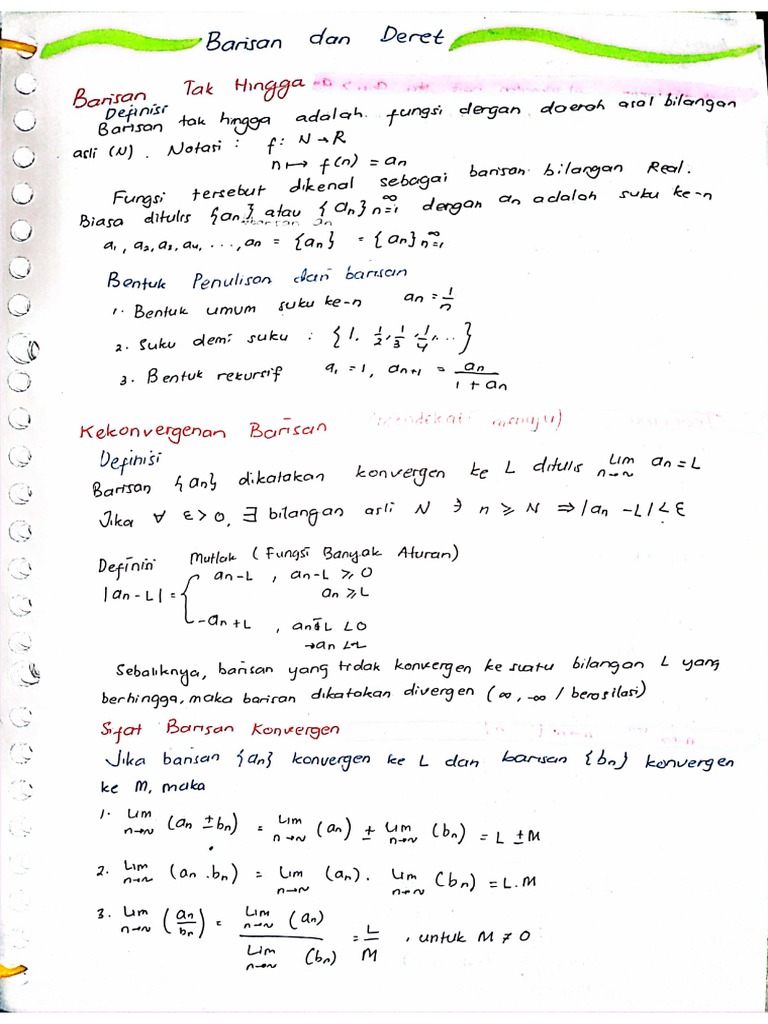 Barisan dan Deret
Barisan Tak Hingga
Definisi
Barisan tak hingga adalah fungsi dengan daerah asal bilangan
asli (N). Notasi : f: N → R
n ↦ f(n) = an
Fungsi tersebut dikenal sebagai barisan bilangan Real.
Biasa ditulis {an} atau {an}_{n=1}^∞ dengan an adalah suku ke-n
a₁, a₂, a₃, a₄, ..., an = {an} = {an}_{n=1}^∞
Bentuk Penulisan dari barisan
1. Bentuk umum suku ke-n an = 1/n
2. Suku demi suku : {1, 1/2, 1/3, 1/4, ...}
3. Bentuk rekursif a₁ = 1, a_{n+1} = an/(1 + an)
Kekonvergenan Barisan
Definisi
Barisan {an} dikatakan konvergen ke L ditulis Lim n→∞ an = L
Jika ∀ ε > 0, ∃ bilangan asli N ∋ n ≥ N ⇒ |an - L| < ε
Definisi Mutlak (Fungsi Banyak Aturan)
|an - L| = { an - L , an - L ≥ 0
an ≥ L
-an + L , an - L < 0
→ an < L
Sebaliknya, barisan yang tidak konvergen ke suatu bilangan L yang
berhingga, maka barisan dikatakan divergen (∞, -∞ / berosilasi)
Sifat Barisan Konvergen
Jika barisan {an} konvergen ke L dan barisan {bn} konvergen
ke M, maka
1. Lim n→∞ (an ± bn) = Lim n→∞ (an) ± Lim n→∞ (bn) = L ± M
2. Lim n→∞ (an . bn) = Lim n→∞ (an) . Lim n→∞ (bn) = L.M
3. Lim n→∞ (an/bn) = Lim n→∞ (an) / Lim n→∞ (bn) = L/M , untuk M ≠ 0